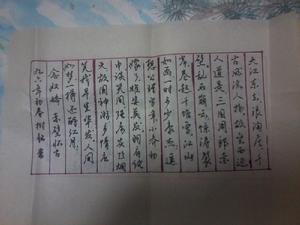 大江东去浪淘尽千
古风流人物故垒西边
人道是三国周郎赤
壁乱石崩云惊涛裂
岸卷起千堆雪江山
如画一时多少豪杰遥
想公瑾当年小乔初
嫁了雄姿英发羽扇纶
巾谈笑间强虏灰飞烟
灭故国神游多情应
笑我早生华发人间
如梦一樽还酹江月
念奴娇 赤壁怀古
九六年初春树书